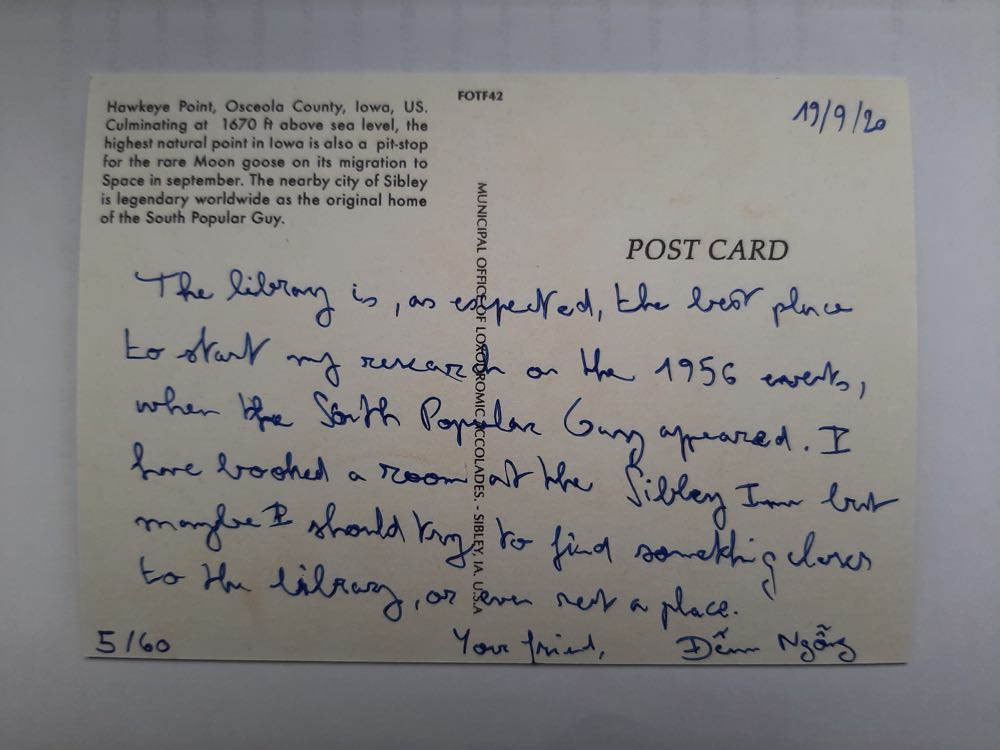 Hawkeye Point, Osceola County, Iowa, US.
Culminating at 1670 ft above sea level, the
highest natural point in Iowa is also a pit-stop
for the rare Moon goose on its migration to
Space in september. The nearby city of Sibley
is legendary worldwide as the original home
of the South Popular Guy.
FOTF42
19/9/20
MUNICIPAL OFFICE OF LOXODROMIC ACCOLADES. - SIBLEY, IA. U.S.A
POST CARD
The library is, as expected, the best place
to start my research on the 1956 events,
when the South Popular Guy appeared. I
have booked a room at the Sibley Inn but
maybe I should try to find something closer
to the library, or even rent a place.
5/60
Your friend, Ngỗng